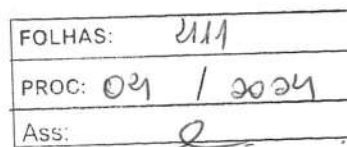 FOLHAS: 2111
PROC: 04 / 2024
Ass: